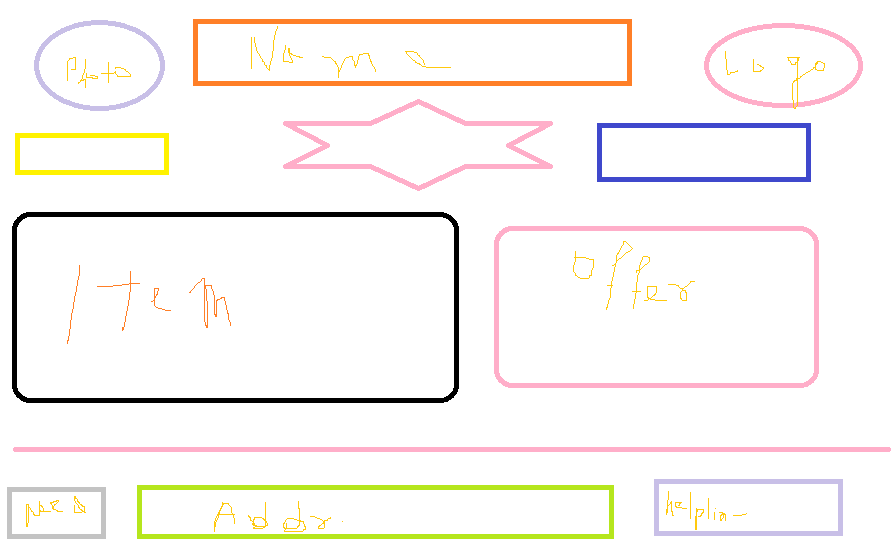 Photo
Name
Logo
Item
Offer
Addr.
helplin